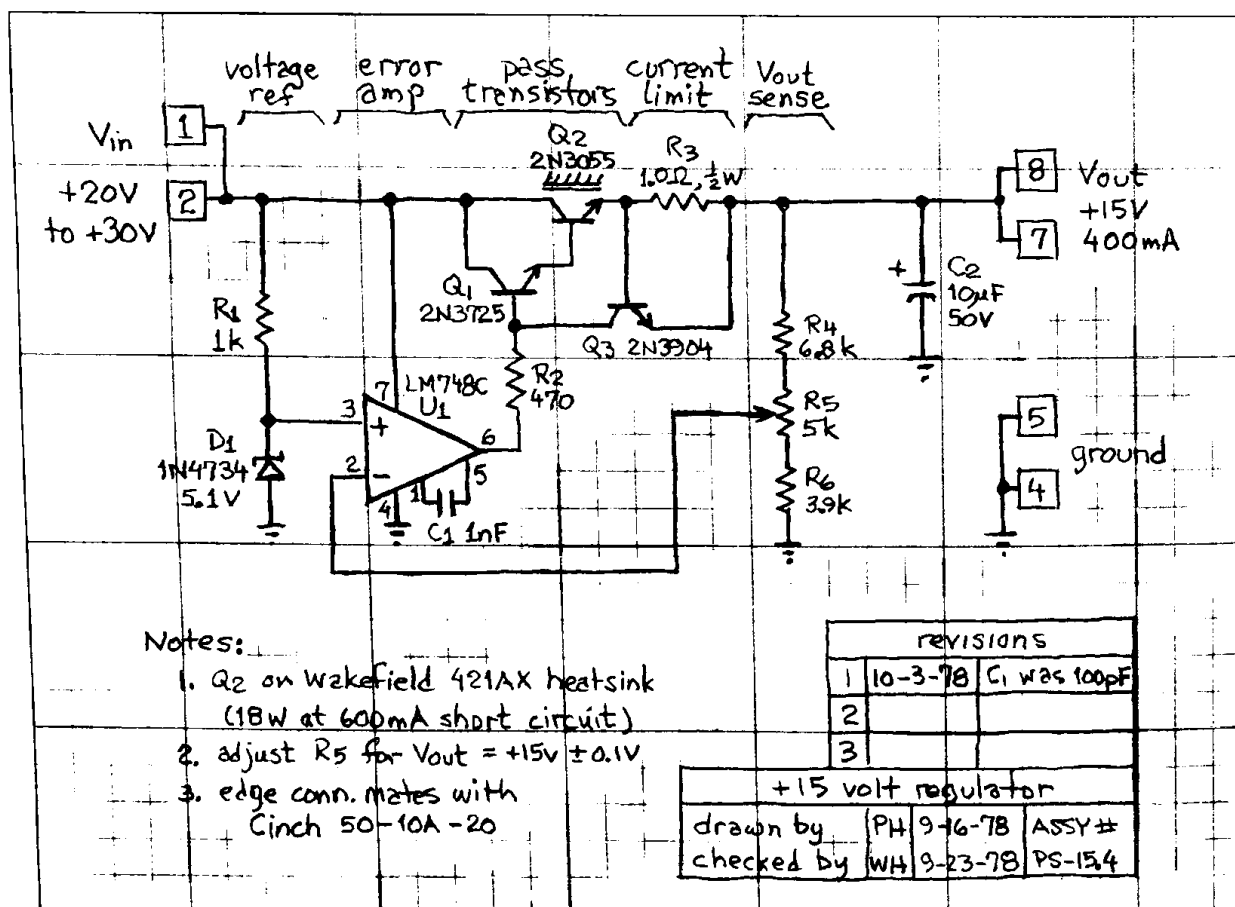 voltage ref
error amp
pass transistors
current limit
Vout sense
Vin
+20V
to +30V
1
2
Q2
2N3055
R3
1.0Ω, ½W
8
7
Vout
+15V
400mA
Q1
2N3725
Q3 2N3904
R1
1k
R2
470
LM748C
U1
7
3
+
2
−
6
5
1
4
C1 1nF
D1
1N4734
5.1V
R4
6.8k
R5
5k
R6
3.9k
+
C2
10μF
50V
5
4
ground
Notes:
1. Q2 on Wakefield 421AX heatsink
(18W at 600mA short circuit)
2. adjust R5 for Vout = +15V ±0.1V
3. edge conn. mates with
Cinch 50-10A-20
revisions
1 10-3-78 C1 was 100pF
2
3
+15 volt regulator
drawn by PH 9-16-78 ASSY #
checked by WH 9-23-78 PS-15.4